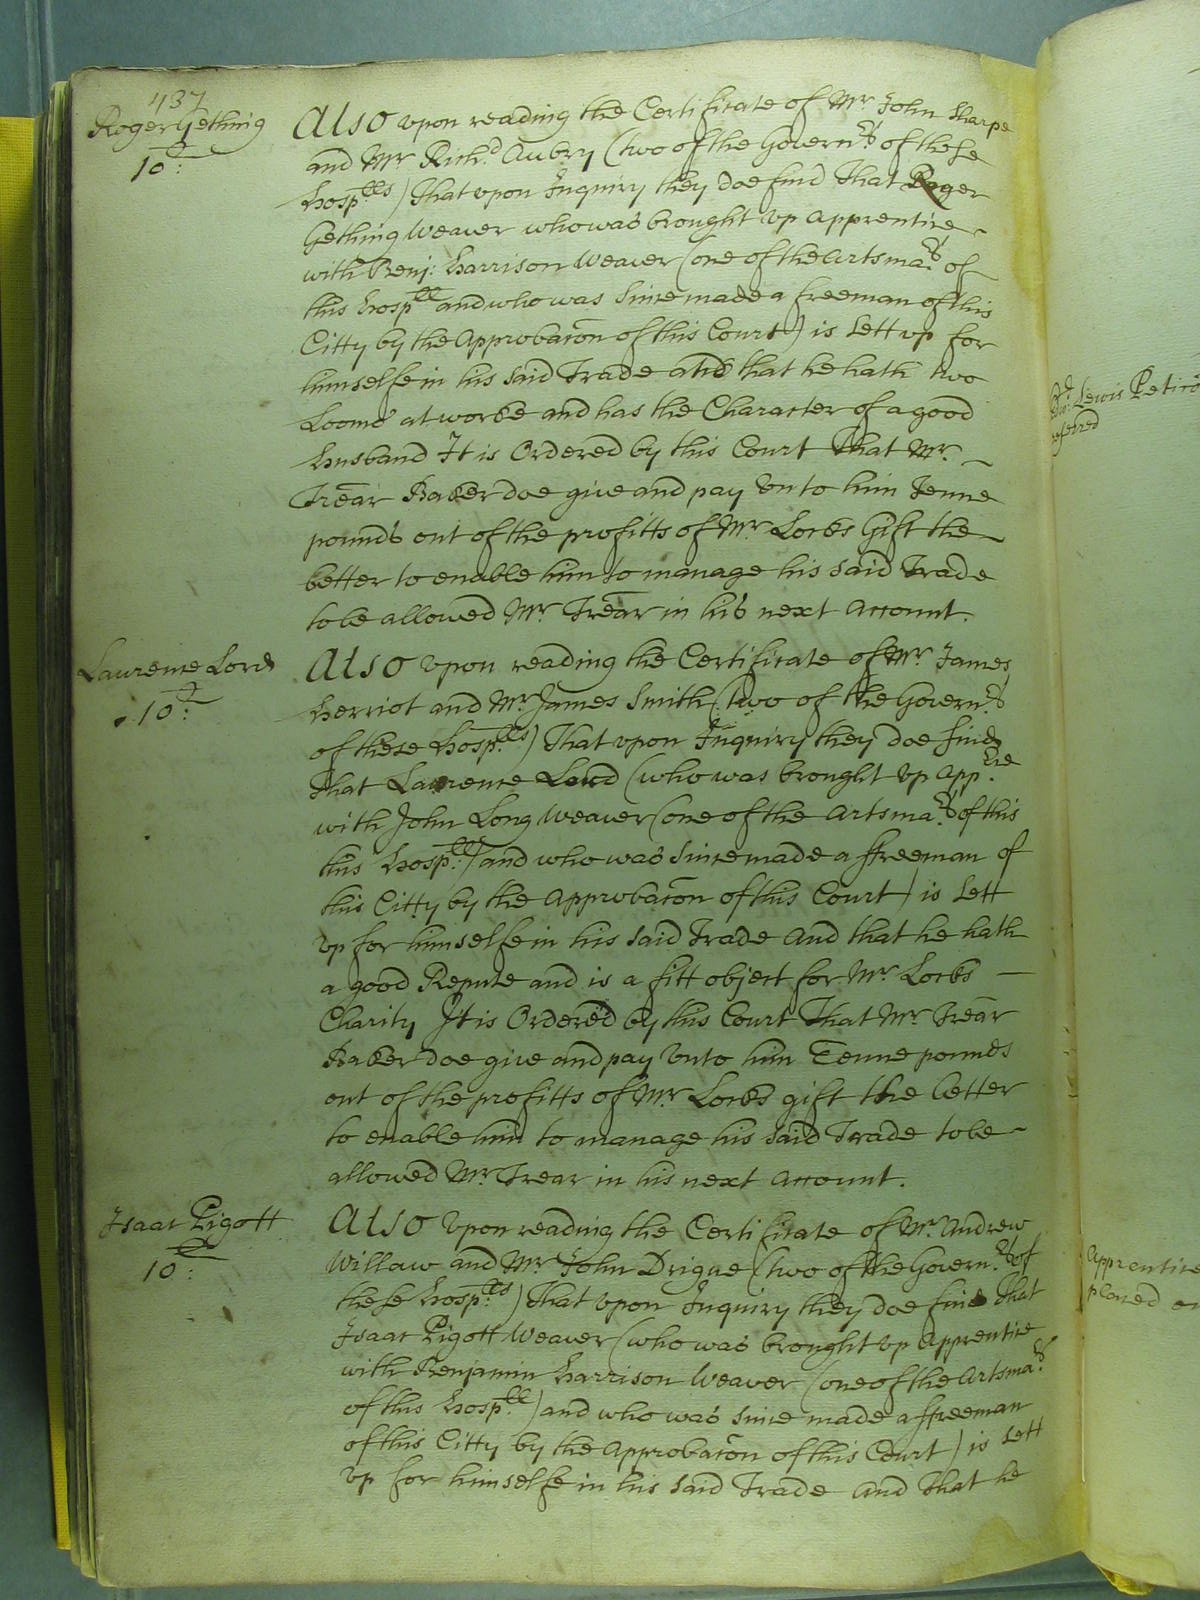 437
Roger Gething
10:
Also vpon reading the Certificate of Mr. John Sharpe
and Mr. Rich:d Aubry (two of the Govern:rs of these
Hosp:lls) That vpon Inquiry they doe find That Roger
Gething Weaver who was brought vp Apprentice
with Benj: Harrison Weaver (one of the Artsma:rs of
this Hosp:ll and who was since made a freeman of this
Citty by the Approbacon of this Court) is sett vp for
himselfe in his said Trade and that he hath two
Looms at worke and has the Character of a good
husband It is Ordered by this Court That Mr.
Trear Baker doe give and pay vnto him Tenne
pounds out of the profitts of Mr. Locks Gift the
better to enable him to manage his said Trade
to be allowed Mr. Trear in his next Account.
Laurence Lord
10:
Also vpon reading the Certificate of Mr. James
Herriot and Mr. James Smith (two of the Govern:rs
of these Hosp:lls) That vpon Inquiry they doe find
That Laurence Lord (who was brought vp App:tice
with John Long Weaver (one of the Artsma:rs of this
this Hosp:ll) and who was since made a ffreeman of
this Citty by the Approbacon of this Court) is sett
vp for himselfe in his said Trade And that he hath
a good Repute and is a fitt object for Mr. Locks
Charity It is Ordered by this Court That Mr. Trear
Baker doe give and pay vnto him Tenne pounds
out of the profitts of Mr. Locks gift the better
to enable him to manage his said Trade to be
allowed Mr. Trear in his next Account.
Isaac Pigott
10:
Also vpon reading the Certificate of Mr. Andrew
Willaw and Mr. John Drigue (two of the Govern:rs of
these Hosp:lls) That vpon Inquiry they doe find That
Isaac Pigott Weaver (who was brought vp Apprentice
with Benjamin Harrison Weaver (one of the Artsma:rs
of this Hosp:ll) and who was since made a ffreeman
of this Citty by the Approbacon of this Court) is sett
vp for himselfe in his said Trade and That he
Lewis Peticon
referred
Apprentice
placed